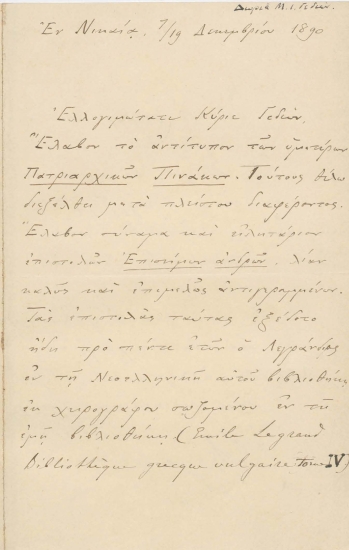 Δωρεὰ Μ. Ι. Γεδεών.
Ἐν Νικαίᾳ, 7/19 Δεκεμβρίου 1890
Ἐλλογιμώτατε Κύριε Γεδεών,
Ἔλαβον τὸ ἀντίτυπον τῶν ὑμετέρων
Πατριαρχικῶν Πινάκων. Τούτους θέλω
διεξέλθει μετὰ πλείστου διαφέροντος.
Ἔλαβον σύναμα καὶ εἰλητάριον
ἐπιστολῶν Ἐπισήμων ἀνδρῶν, λίαν
καλῶς καὶ ἐπιμελῶς ἀντιγραμμένον.
Τὰς ἐπιστολὰς ταύτας ἐξέδοτο
ἤδη πρὸ πέντε ἐτῶν ὁ Λεγράνδος
ἐν τῇ Νεοελληνικῇ αὐτοῦ βιβλιοθήκῃ
ἐκ χειρογράφου σωζομένου ἐν τῇ
ἐμῇ βιβλιοθήκῃ (Emile Legrand
Bibliothèque grecque vulgaire Tome IV)